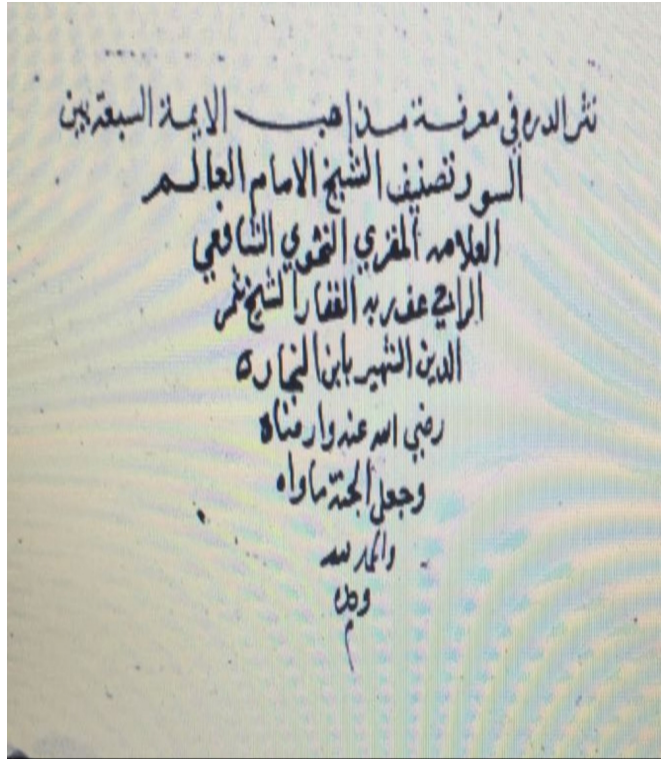 نثر الدرر في معرفة مذاهب الايمة السبعة بين
السور تصنيف الشيخ الامام العالم
العلامه المقري النحوي الشافعي
الراجي عفو ربه الغفار الشيخ شمس
الدين الشهير بابن النجاره
رضي الله عنه وارضاه
وجعل الجنة ماواه
والحمد لله
وحده
م